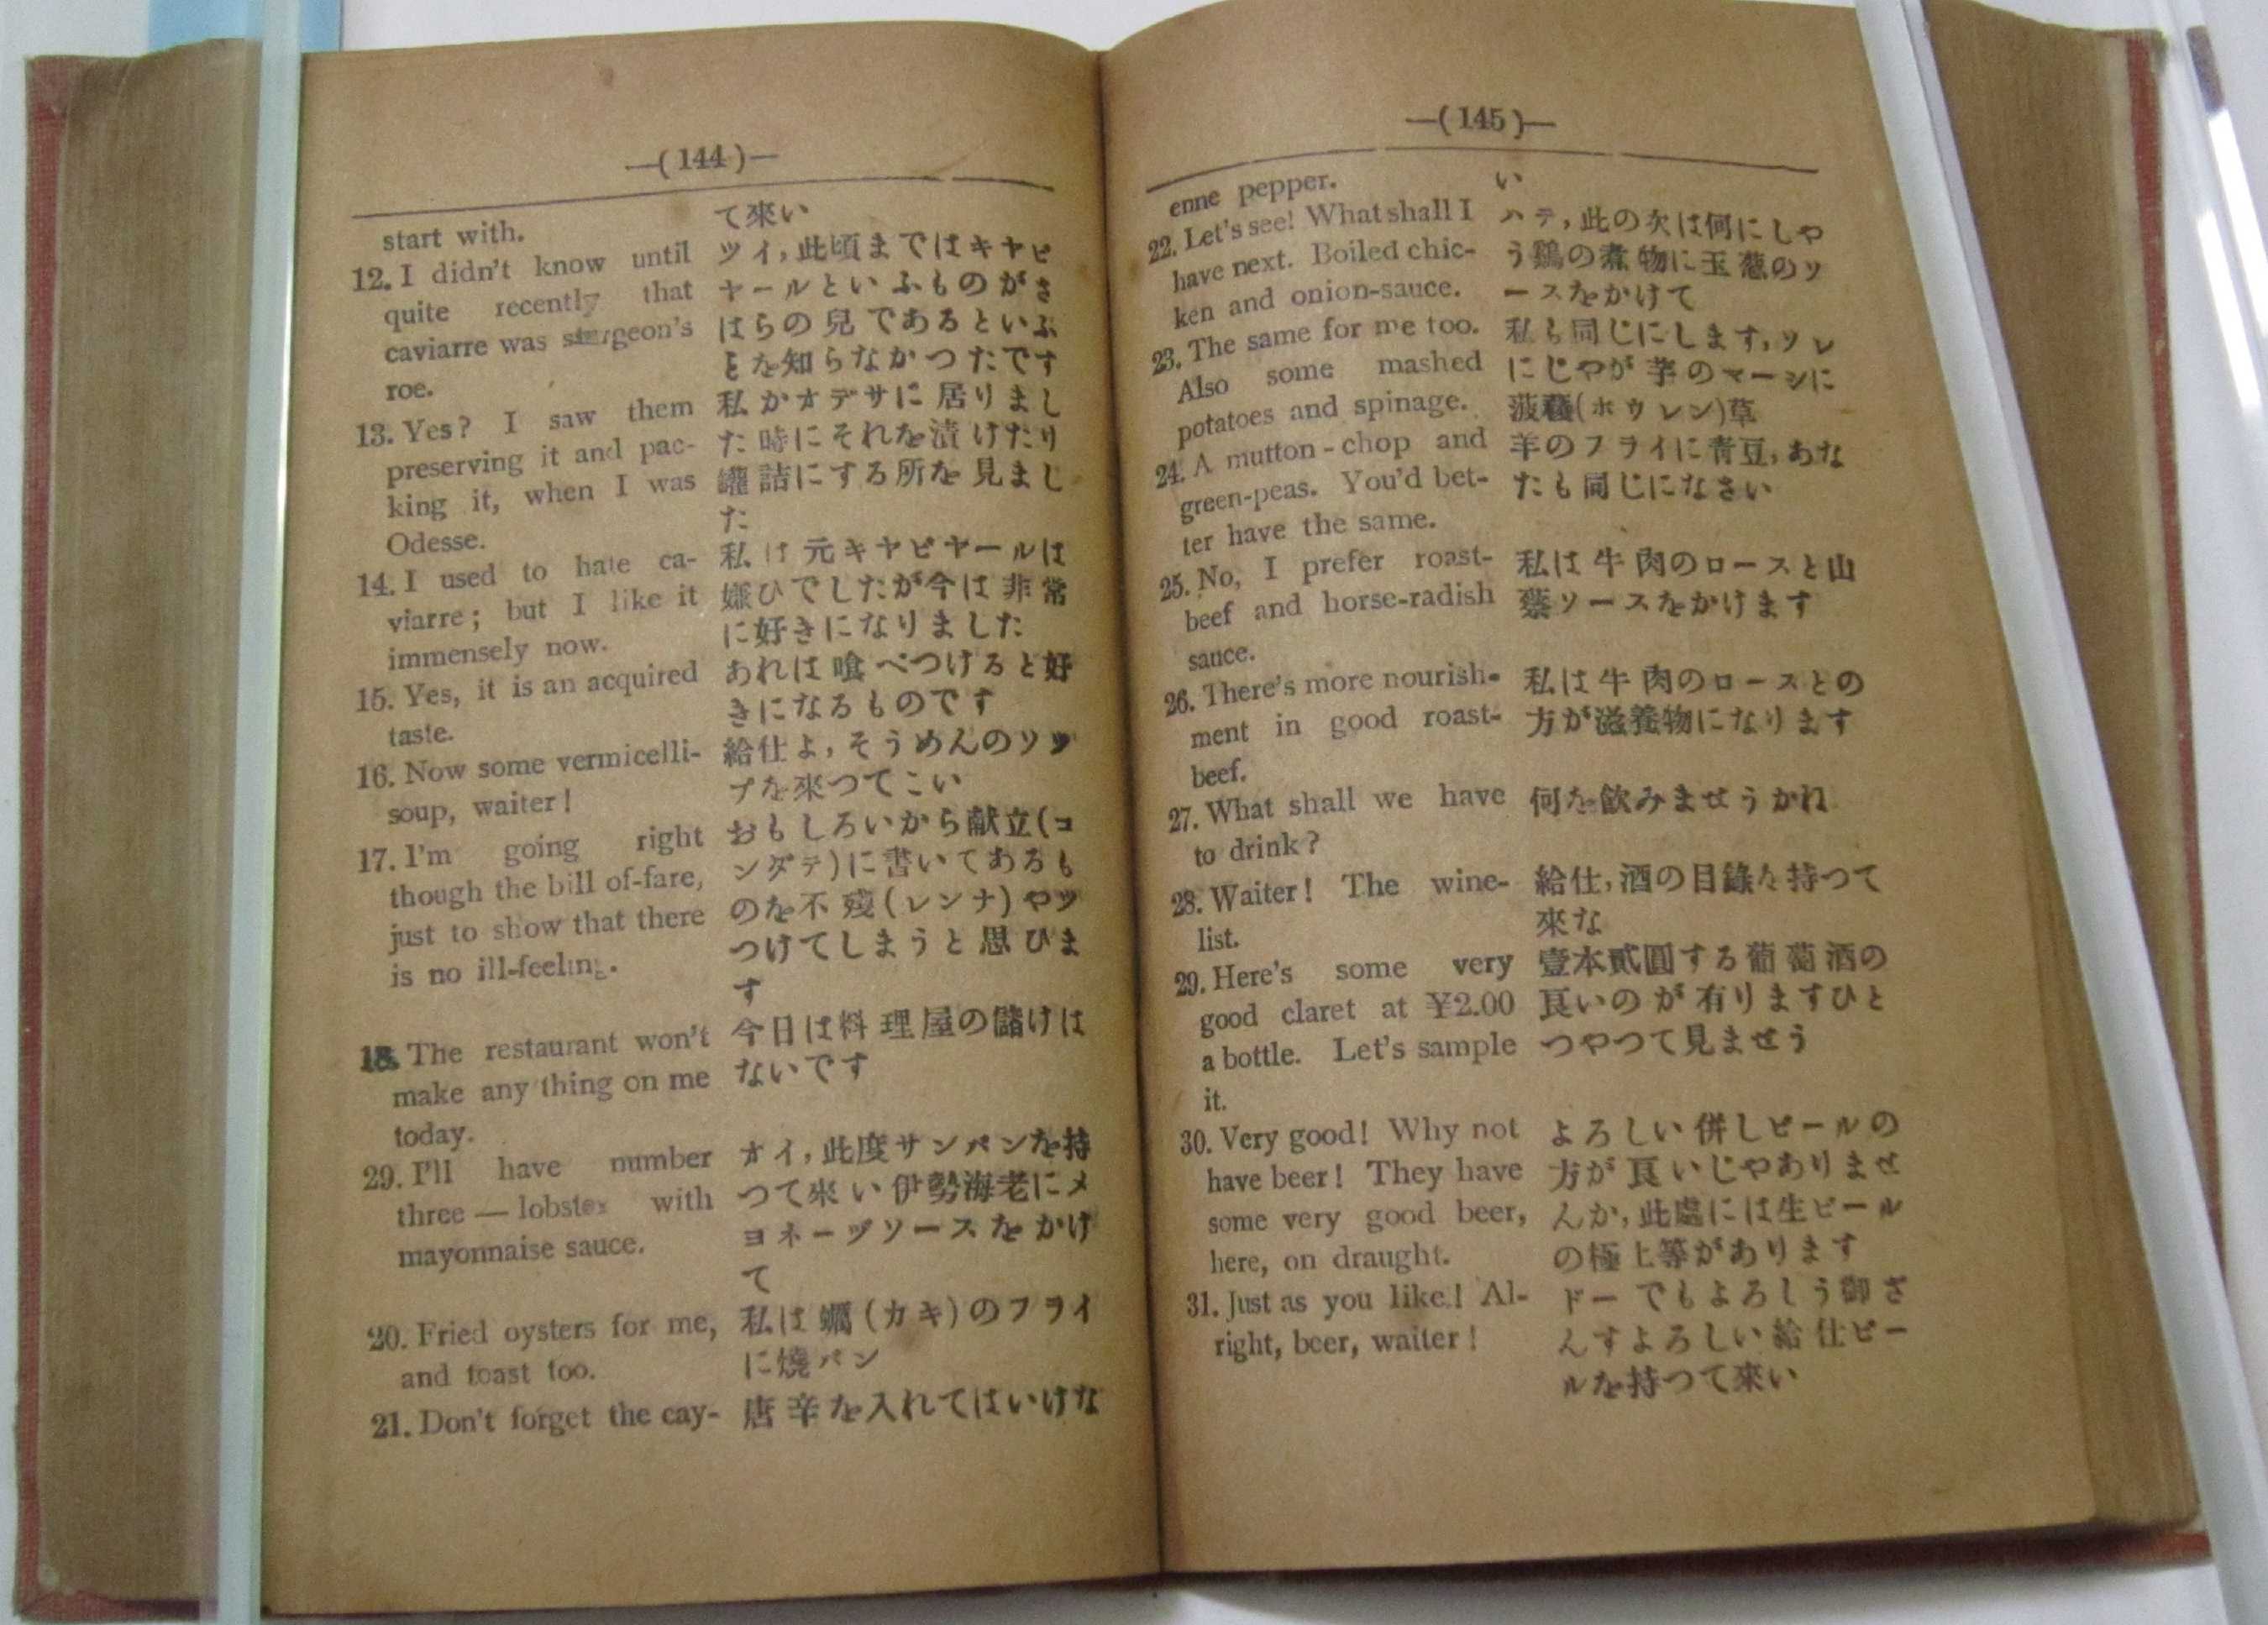 —( 144 )—
start with.
12. I didn't know until
quite recently that
caviarre was sturgeon's
roe.
13. Yes? I saw them
preserving it and pac-
king it, when I was
Odesse.
14. I used to hate ca-
viarre; but I like it
immensely now.
15. Yes, it is an acquired
taste.
16. Now some vermicelli-
soup, waiter!
17. I'm going right
though the bill of-fare,
just to show that there
is no ill-feeling.
18. The restaurant won't
make any thing on me
today.
29. I'll have number
three — lobster with
mayonnaise sauce.
20. Fried oysters for me,
and toast too.
21. Don't forget the cay-
て來い
ツイ,此頃まではキヤビ
ヤールといふものがさ
はらの兒であるといふ
とを知らなかつたです
私かオデサに居りまし
た時にそれを漬けたり
罐詰にする所を見まし
た
私は元キヤビヤールは
嫌ひでしたが今は非常
に好きになりました
あれは喰べつけると好
きになるものです
給仕よ,そうめんのソツ
プを來つてこい
おもしろいから献立(コ
ンダテ)に書いてあるも
のを不殘(レンナ)やツ
つけてしまうと思ひま
す
今日は料理屋の儲けは
ないです
オイ,此度サンパンを持
つて來い伊勢海老にメ
ヨネーヅソースをかけ
て
私は蠣(カキ)のフライ
に燒パン
唐辛を入れてはいけな
—( 145 )—
enne pepper.
22. Let's see! What shall I
have next. Boiled chic-
ken and onion-sauce.
23. The same for me too.
Also some mashed
potatoes and spinage.
24. A mutton-chop and
green-peas. You'd bet-
ter have the same.
25. No, I prefer roast-
beef and horse-radish
sauce.
26. There's more nourish-
ment in good roast-
beef.
27. What shall we have
to drink?
28. Waiter! The wine-
list.
29. Here's some very
good claret at ¥2.00
a bottle. Let's sample
it.
30. Very good! Why not
have beer! They have
some very good beer,
here, on draught.
31. Just as you like! Al-
right, beer, waiter!
い
ハテ,此の次は何にしや
う鷄の煮物に玉葱のソ
ースをかけて
私も同じにします,ソレ
にじやが芋のマーシに
菠薐(ホウレン)草
羊のフライに青豆,あな
たも同じになさい
私は牛肉のロースと山
葵ソースをかけます
私は牛肉のロースとの
方が滋養物になります
何を飲みませうかね
給仕,酒の目錄を持つて
來な
壹本貳圓する葡萄酒の
良いのが有りますひと
つやつて見ませう
よろしい併しビールの
方が良いじやありませ
んか,此處には生ビール
の極上等があります
ドーでもよろしう御ざ
んすよろしい給仕ビー
ルを持つて來い